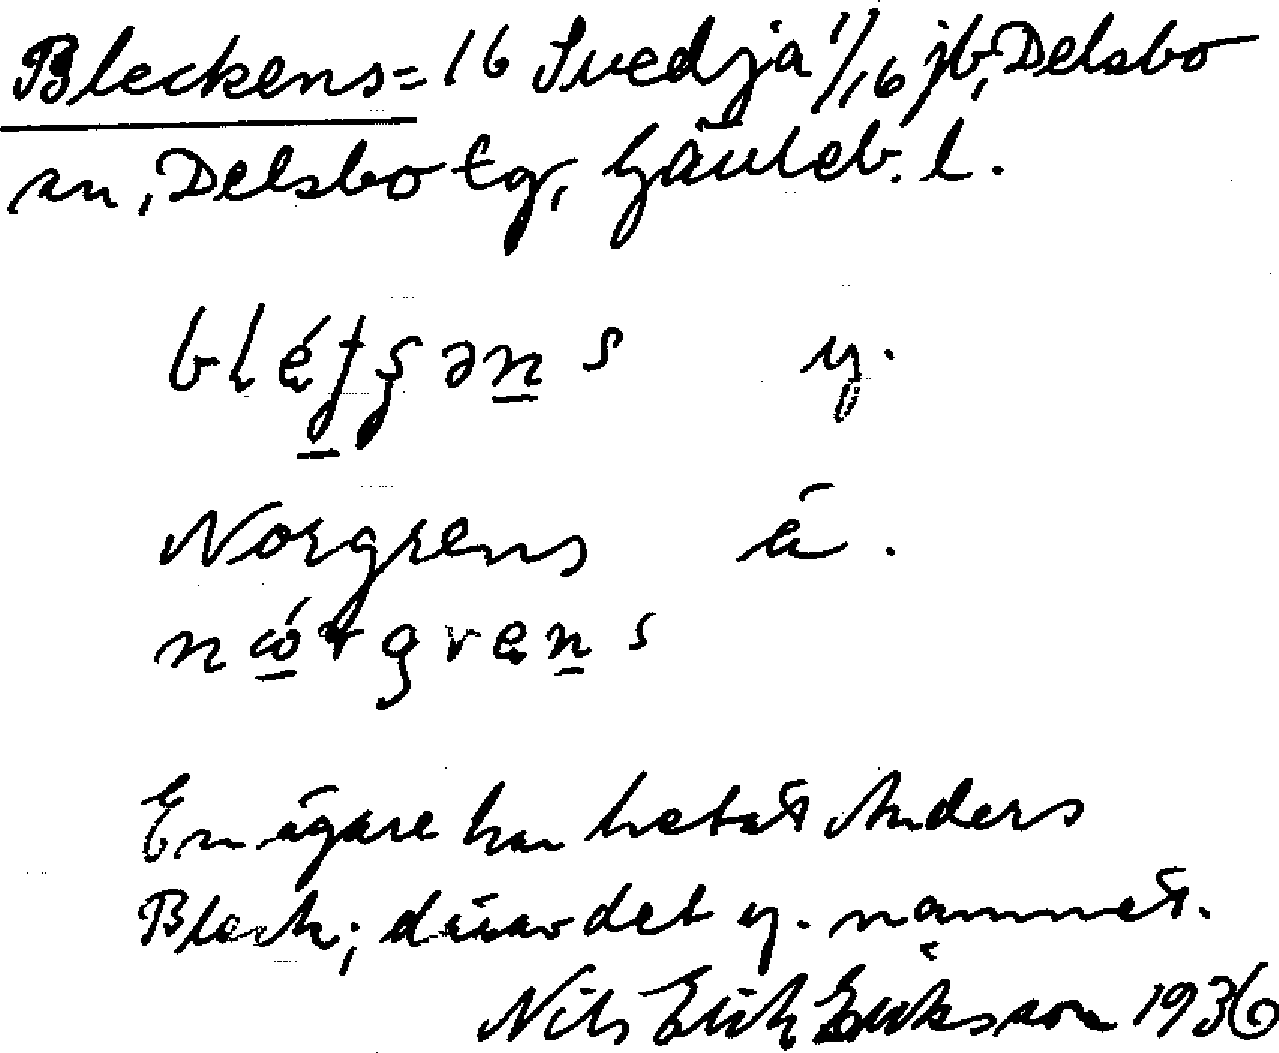 Bleckens = 16 Svedja 1/16 jb, Delsbo
sn, Delsbo tg, Gävleb. l.
y.
Norgrens ä.
En ägare har hetat Anders
Bleck; därav det y. namnet.
Nils Erik Eriksson 1936